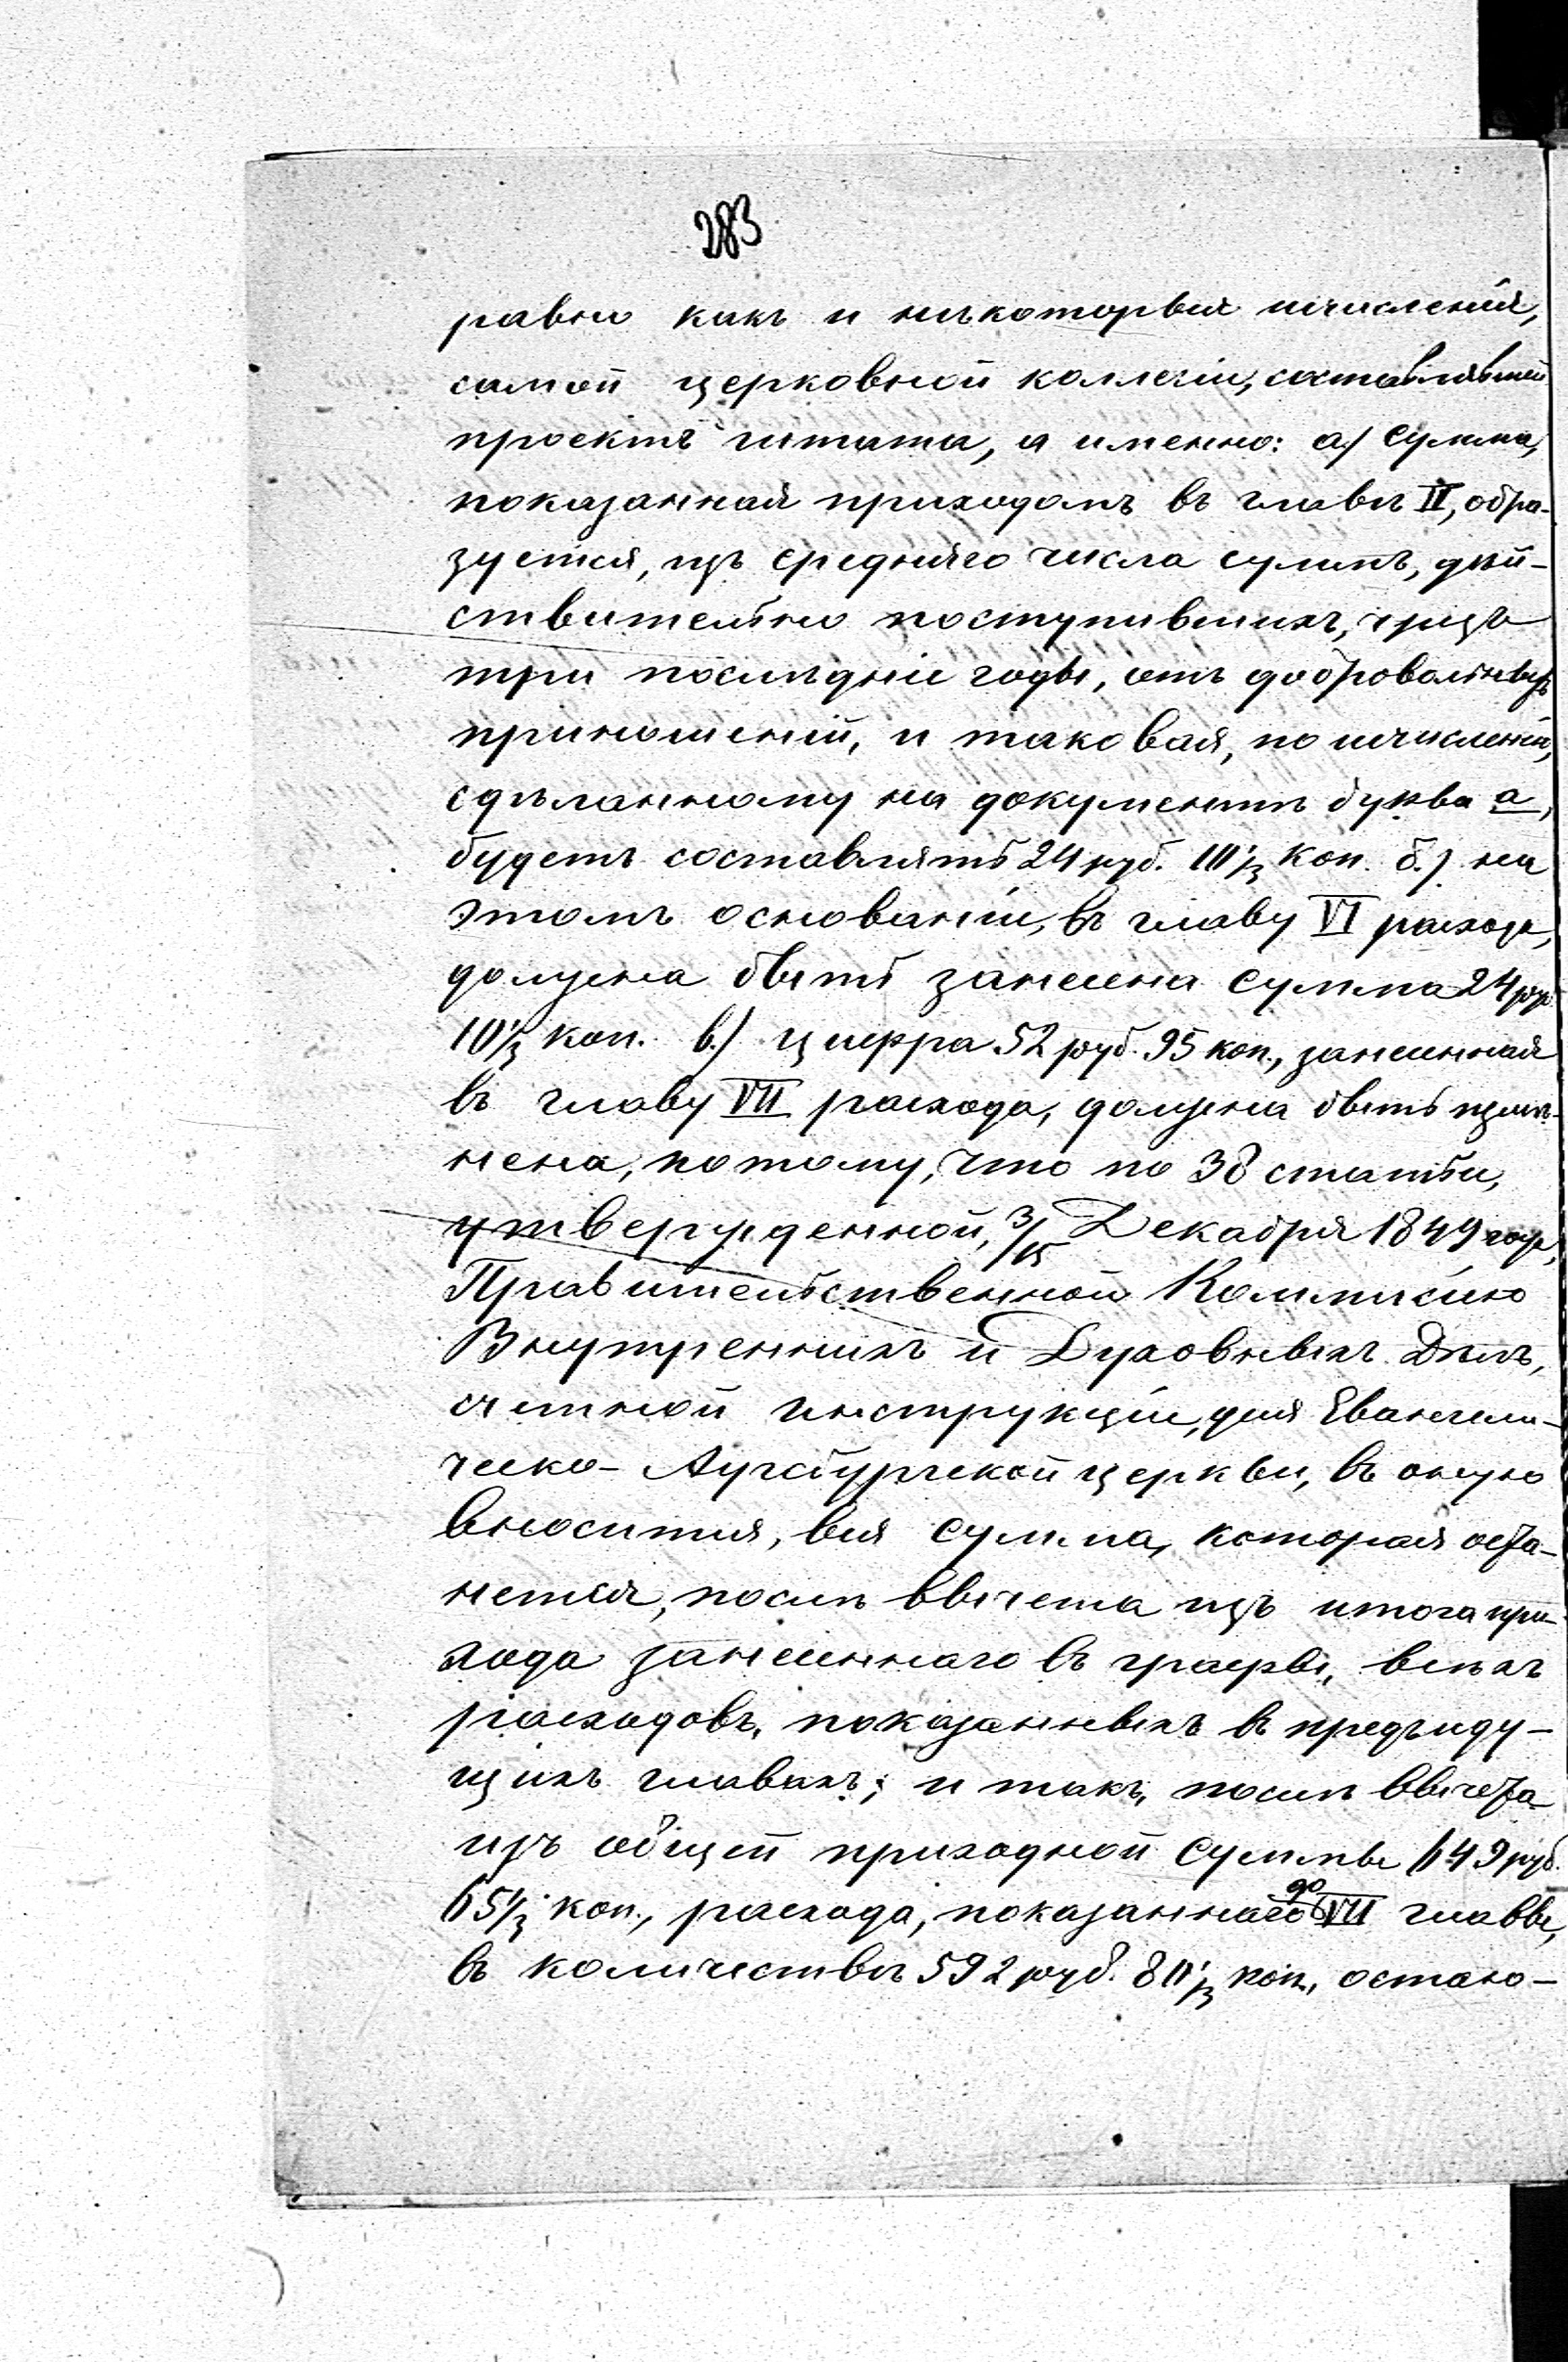 283
равно какъ и нѣкоторыя исчисленія,
самой церковной коллегіи, составлявшей
проектъ штата, а именно: а) сумма,
показанная приходомъ въ главѣ II, обра-
зуется, изъ средняго числа суммъ, дѣй-
ствительно поступившихъ, чрезъ
три послѣдніе годы, отъ добровольныхъ
приношеній, и таковая, по исчисленію,
сдѣланному на документѣ буква а,
будетъ составлять 24 руб. 10⅓ коп. б.) на
этомъ основаніи, въ главу VI расхода,
должна быть занесена сумма 24 руб.
10⅓ коп. в.) цифра 52 руб. 95 коп., занесенная
въ главу VII расхода, должна быть измѣ-
нена, потому, что по 38 статьи,
утвержденной, 3/15 Декабря 1849 года,
Правительственной Коммисіею
Внутреннихъ и Духовныхъ Дѣлъ,
счетной инструкціи, для Евангели-
ческо-Аугсбургской церкви, въ оную
вносится, вся сумма, которая оста-
нется, послѣ вычета изъ итога при-
хода занесеннаго въ графы, всѣхъ
расходовъ, показанныхъ въ предъиду-
щихъ главахъ; и такъ, послѣ вычета
изъ общей приходной суммы 649 руб.
65⅓ коп., расхода, показаннаго до VII главы,
въ количествѣ 592 руб. 80⅓ коп., остаю-